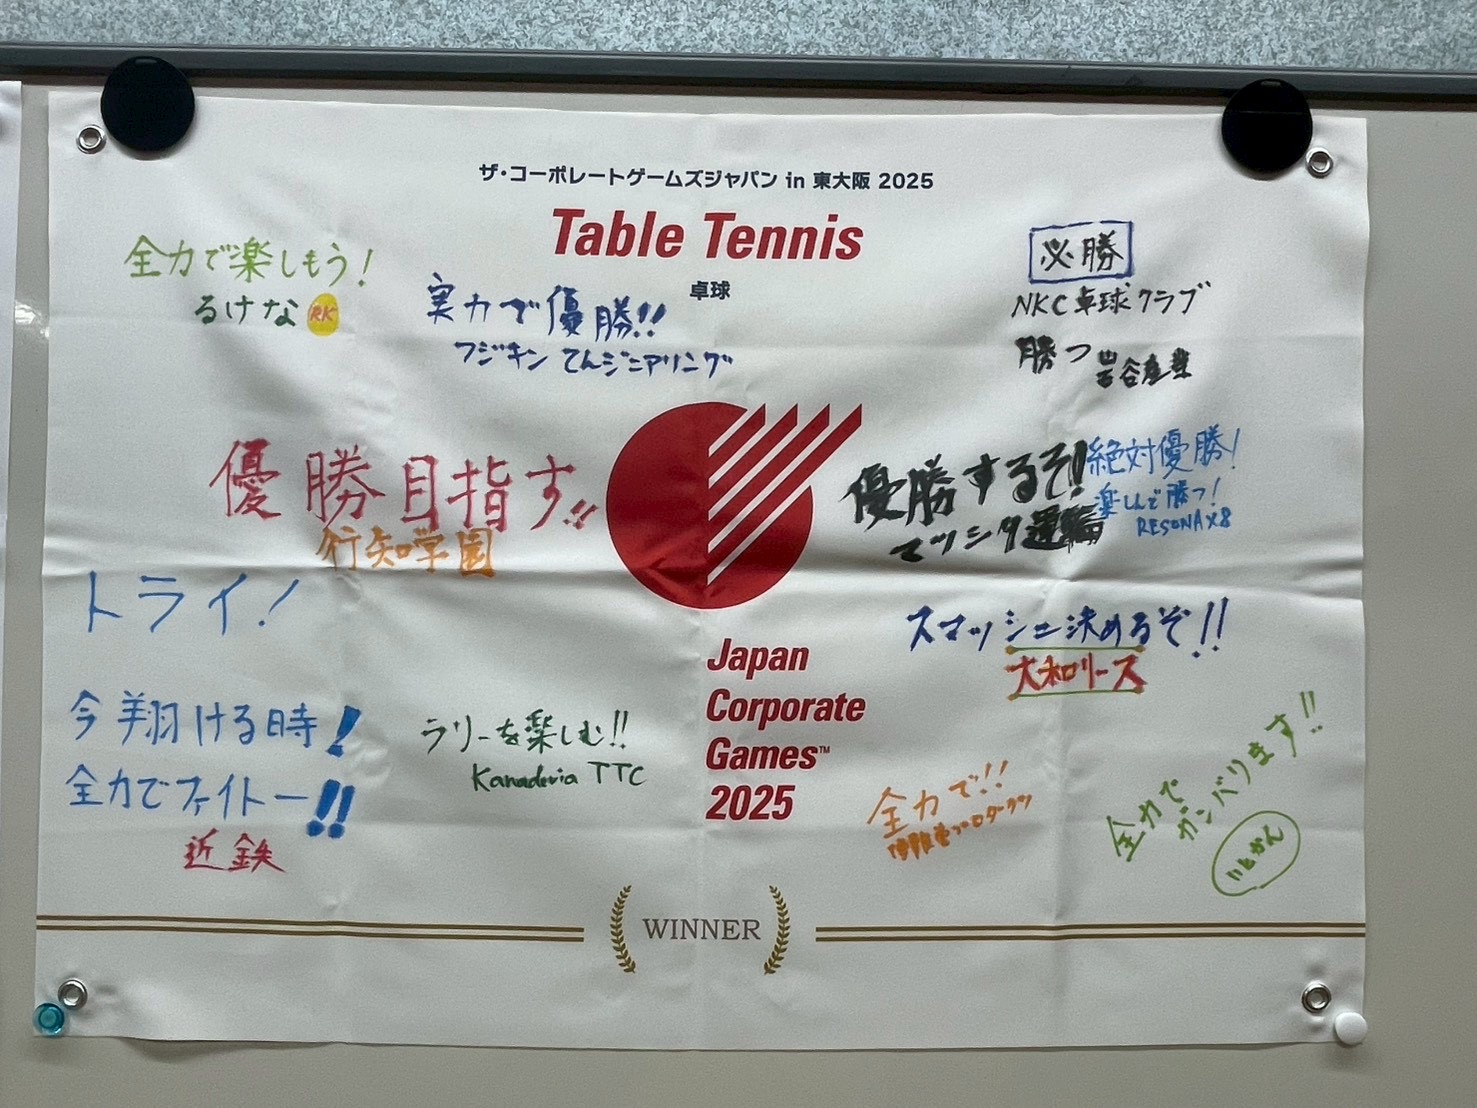 ザ・コーポレートゲームズジャパン in 東大阪 2025
Table Tennis
卓球
全力で楽しもう!
るけな RK
実力で優勝!!
フジキン てんジニアリング
必勝
NKC卓球クラブ
勝つ 岩谷産業
優勝目指す!!
行知学園
優勝するぞ!
マツシタ運輸
絶対優勝!
楽しんで勝つ!
RESONAX8
トライ!
スマッシュ決めるぞ!!
大和リース
今翔ける時!
全力でファイトー!!
近鉄
ラリーを楽しむ!!
Kanadevia TTC
Japan
Corporate
Games™
2025
全力で!!
博報堂プロダクツ
全力で
ガンバります!!
いとかん
WINNER